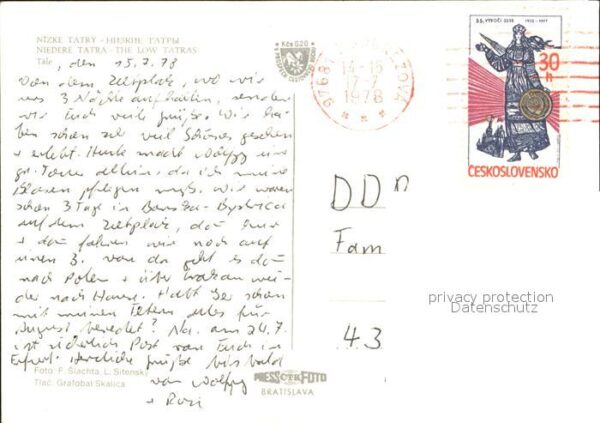 NÍZKE TATRY - НИЗКИЕ ТАТРЫ
NIEDERE TATRA - THE LOW TATRAS
Tále, den 15.7.78
Von dem Zeltplatz, wo wir
uns 3 Nächte aufhalten, senden
wir Euch viele Grüße. Wir ha-
ben schon sehr viel Schönes gesehen
+ erlebt. Heute macht Wolfgg eine
gr. Tour allein, da ich meine
Blasen pflegen muß. Wir waren
schon 3 Tage in Banska-Bystrica
auf dem Zeltplatz, dann hier
+ dann fahren wir noch auf
einen 3. von da geht es dann
nach Polen + über Krakau wie-
der nach Hause. Habt Ihr schon
mit meinen Eltern alles für
August beredet? Na, am 24.7.
ist sicherlich Post von Euch in
Erfurt. Herzliche Grüße bis bald
von Wolfgg
+ Rosi
Foto: F. Šlachta, L. Sitenský
Tlač: Grafobal Skalica
Kčs 0,20
PRESSFOTO
BRATISLAVA
14-15
17.-7.
1978
55. VÝROČÍ SSSR 1922-1977
30 h
ČESKOSLOVENSKO
DD
Fam
43
privacy protection
Datenschutz